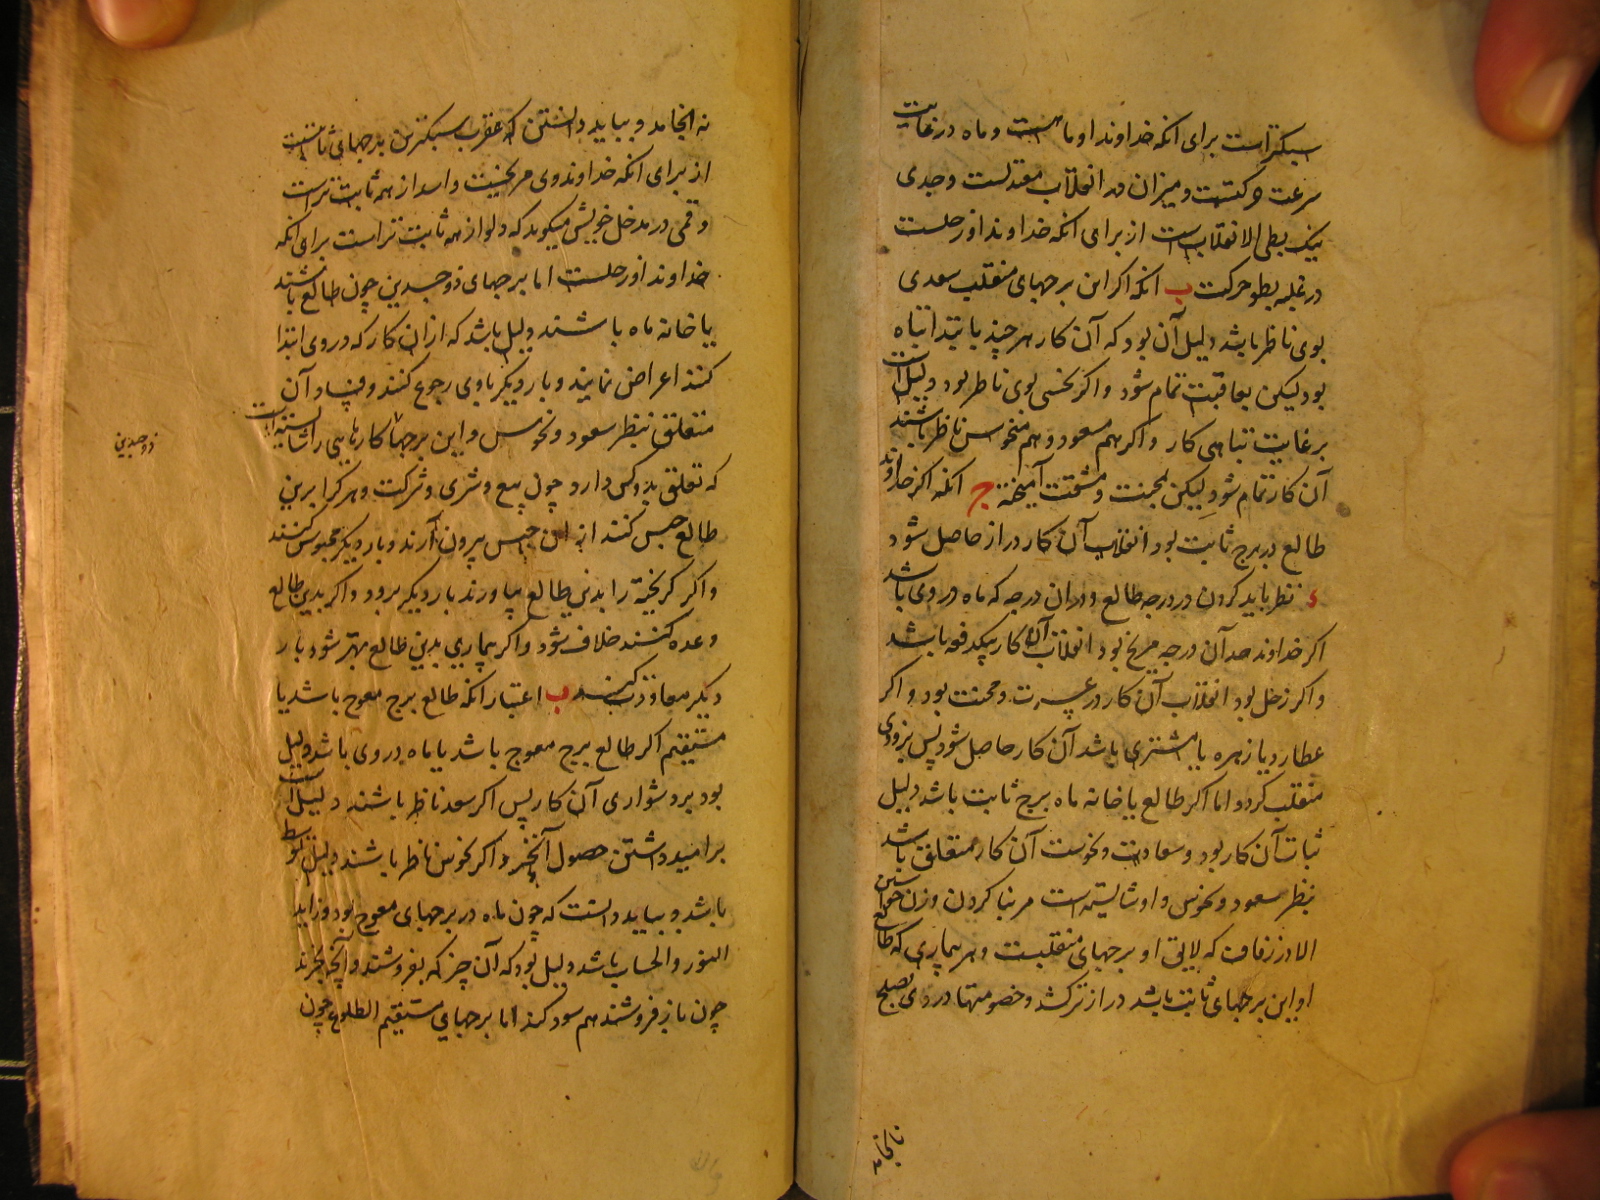 سبکتر است برای انکه خداوند او ماهست و ماه در غایت
سرعت حرکتست و میزان در انقلاب معتدلست و جدی
نیک بطی الانقلابست از برای انکه خداوند او زحلست
در غلبه بطو حرکت ب انکه اکر این برجهای منقلب سعدی
بوی ناظر باشد دلیل آن بود که آن کار هر چند بابتدا تباه
بود لیکن بعاقبت تمام شود و اکر نحسی بوی ناظر بود دلیل است
بر غایت تباهی کار و اکر هم مسعود و هم منحوس ناظر باشند
آن کار تمام شود لیکن بمحنت و مشقت آمیخته ج انکه اکر خداوند
طالع در برج ثابت بود انقلاب آن کار دراز حاصل شود
ء نظر باید کردن در درجه طالع و در ان درجه که ماه در وی باشد
اکر خداوند حد آن درجه مریخ بود انقلاب آن کار بیکدفعه باشد
و اکر زحل بود انقلاب آن کار در عسرت و محنت بود و اکر
عطارد یا زهره یا مشتری باشد آن کار حاصل شود پس بزودی
منقلب کردد اما اکر طالع یا خانه ماه برج ثابت باشد دلیل
ثبات آن کار بود و سعادت و نحوست آن کار متعلق باشد
بنظر سعود و نحوس و او شایسته است مر بنا کردن و زن خواستن
الا در زفافت که لایق او برجهای منقلبست و هر بیماری که طالع
او این برجهای ثابت باشد دراز تر کشد و خصومتها در وی بصلح
نانجامد
نه انجامد و بباید دانستن که عقرب سبکترین برجهای ثابتست
از برای انکه خداوند وی مریخست و اسد از همه ثابت تر است
و قمی در مدخل خویش میکوید که دلو از همه ثابت تر است برای انکه
خداوند او زحلست اما برجهای ذو جسدین چون طالع باشند
یا خانه ماه باشند دلیل باشد که از ان کار که در وی ابتدا
کنند اعراض نمایند و بار دیکر باوی رجوع کنند و فساد آن
متعلق بنظر سعود و نحوس و این برجها کارهایی را شایسته است
ذو جسدین
که تعلق بدو کس دارد چون بیع و شری و شرکت و هر کرا برین
طالع حبس کنند از ان حبس بیرون آرند و بار دیکر محبوس کنند
و اکر کریخته را بدین طالع بیاورند بار دیکر برود و اکر بدین طالع
وعده کنند خلاف شود و اکر بیماری بدین طالع بهتر شود بار
دیکر معاودت کند ب اعتبار انکه طالع برج معوج باشد یا
مستقیم اکر طالع برج معوج باشد یا ماه در وی باشد دلیل
بود بر دشواری آن کار پس اکر سعد ناظر باشند دلیل است
بر امید داشتن حصول آنچیز و اکر نحوس ناظر باشند دلیل
باشد و بباید دانست که چون ماه در برجهای معوج بود و زاید
النور و الحساب باشد دلیل بود که آن چیز که بفروشند و آنچه بخرند
چون باز فروشند هم سود کند اما برجهایی مستقیم الطلوع چون